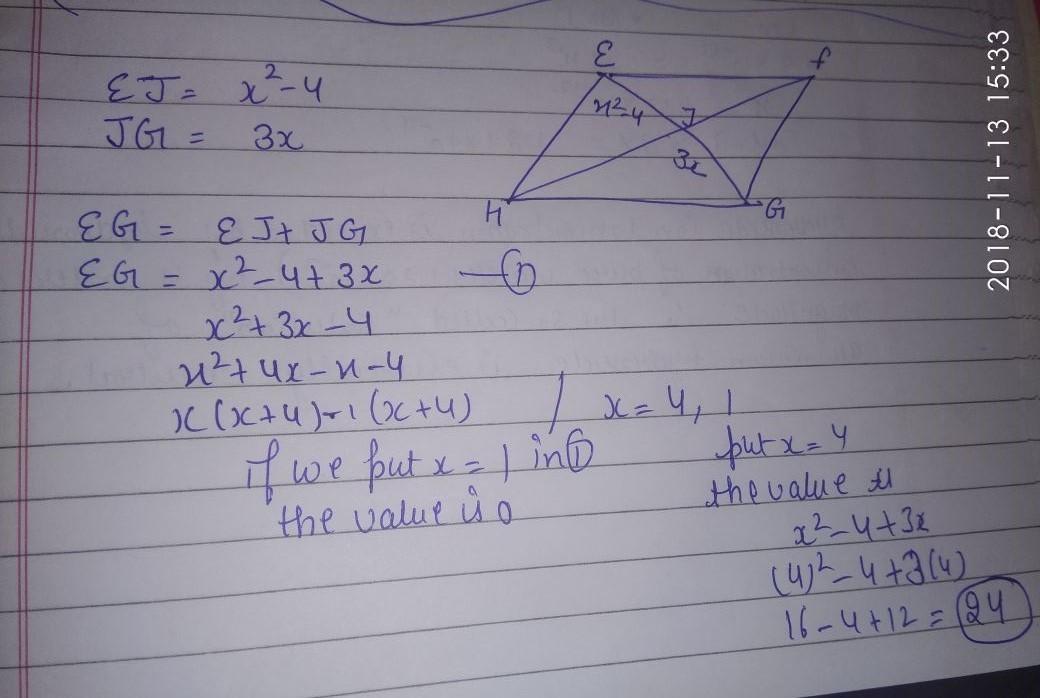 EJ = x²-4
JG = 3x
E
f
x²-4
J
3x
H
G
EG = EJ + JG
EG = x²-4+3x —①
x²+3x-4
x²+4x-x-4
x(x+4)-1(x+4) / x=4, 1
if we put x=1 in ①
the value is 0
put x=4
the value is
x²-4+3x
(4)²-4+3(4)
16-4+12 = 24
2018-11-13 15:33